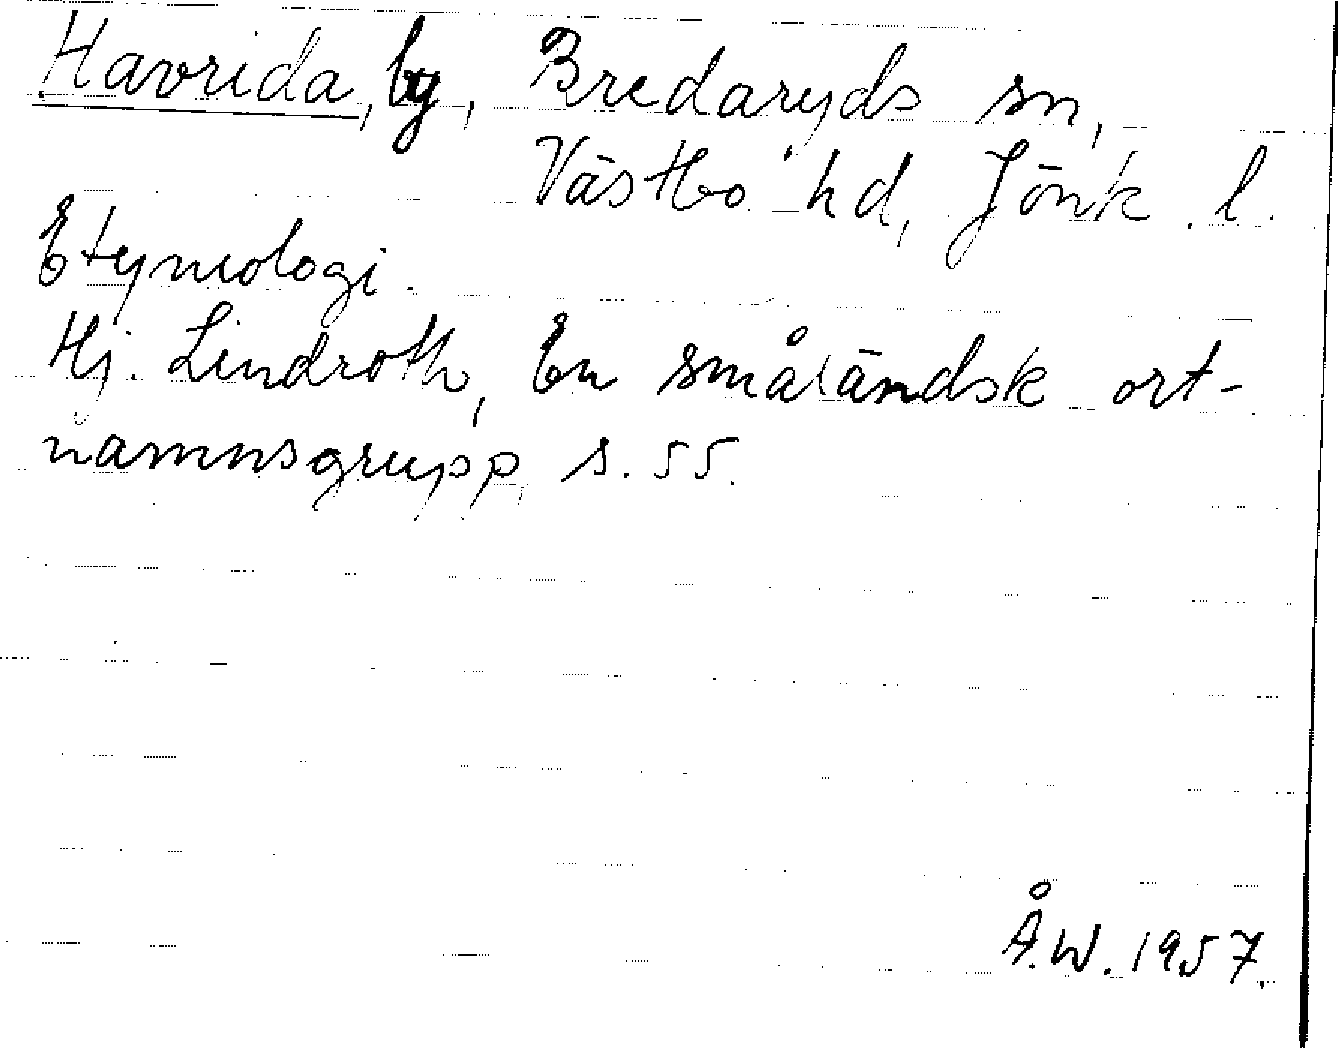 Havrida, by, Bredaryds sn,
Västbo hd, Jönk. l.
Etymologi.
Hj. Lindroth, En småländsk ort-
namnsgrupp, s. 55.
Å.W. 1957.